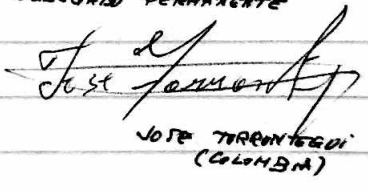 PERMANENTE
Jose Torrontegui
JOSE TORRONTEGUI
(COLOMBIA)